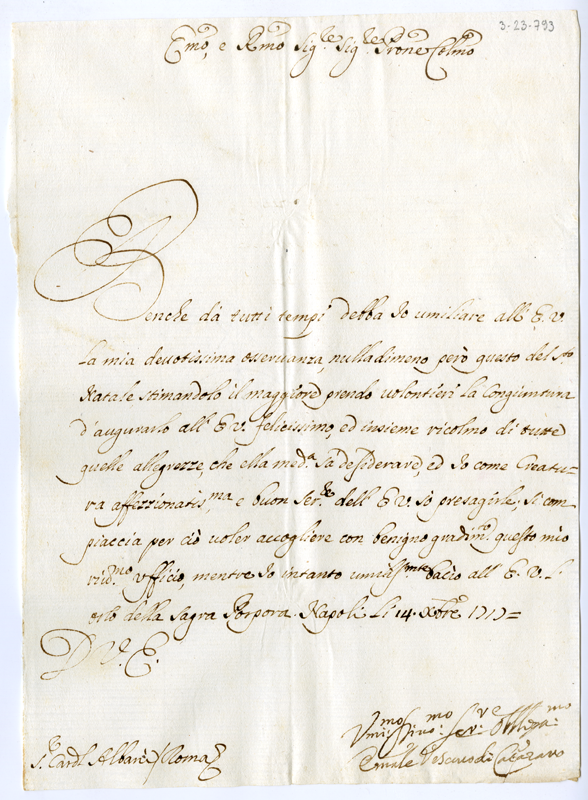 3-23-793
Emo, e Rmo Sig.re Sig.re Prone Colmo
Benche da tutti tempi debba io umiliare all' E. V.
la mia devotissima osservanza, nulladimeno però questo del Sto
Natale stimandolo il maggiore prendo volontieri la Congiuntura
d'augurarlo all' E. V. felicissimo, ed insieme ricolmo di tutte
quelle allegrezze, che ella med.a sa desiderare, ed io come Creatu-
ra affezzionatis.ma e buon Ser.re dell' E. V. sò presagirle; si com
piaccia per ciò voler accogliere con benigno gradim.to questo mio
rivd.mo Ufficio, mentre io intanto umiliss.mte bacio all' E. V. l'
orlo della Sagra Porpora. Napoli li 14. Xbre 1717=
D. V. E.
Vmiss.mo Ser.re Obliga.mo
Vescovo di
S.r Card.l Albani / Roma